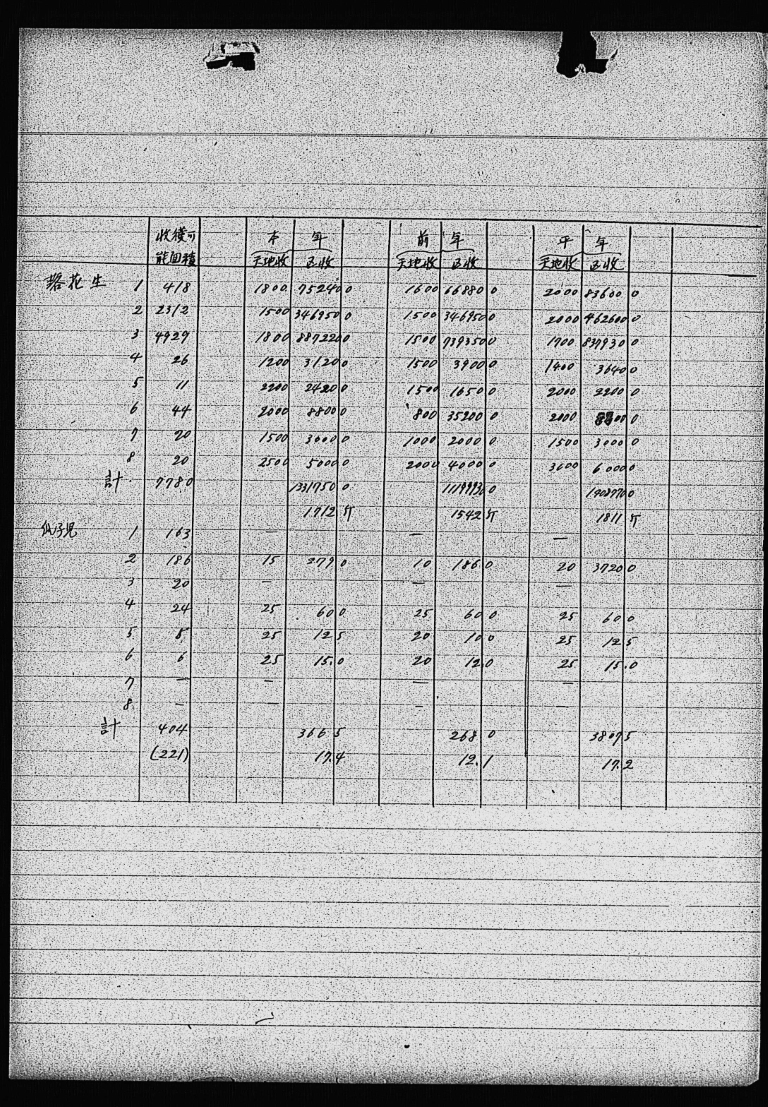 收穫可 本 年 前 年 平 年
能面積 天地收 区收 天地收 区收 天地收 区收
落花生 1 418 1800 752400 1600 668800 2000 836000
2 2312 1500 3469500 1500 3469500 2000 4626000
3 4929 1800 8872200 1500 7393500 1700 8379300
4 26 1200 31200 1500 39000 1400 36400
5 11 2200 24200 1500 16500 2000 22000
6 44 2000 88000 800 35200 0 2000 88000
7 20 1500 30000 1000 20000 1500 30000
8 20 2500 50000 2000 40000 3000 60000
計 7780 13317500
1712 斤 1542 斤 1811 斤
1 163 — — —
2 186 15 2790 10 1860 20 37200
3 20 — — —
4 24 25 600 25 600 25 600
5 5 25 125 20 100 25 125
6 6 25 15.0 20 120 25 15.0
7 — — — —
8 — — —
計 404 3665 2680 38075
(221) 17.4 12.1 17.2